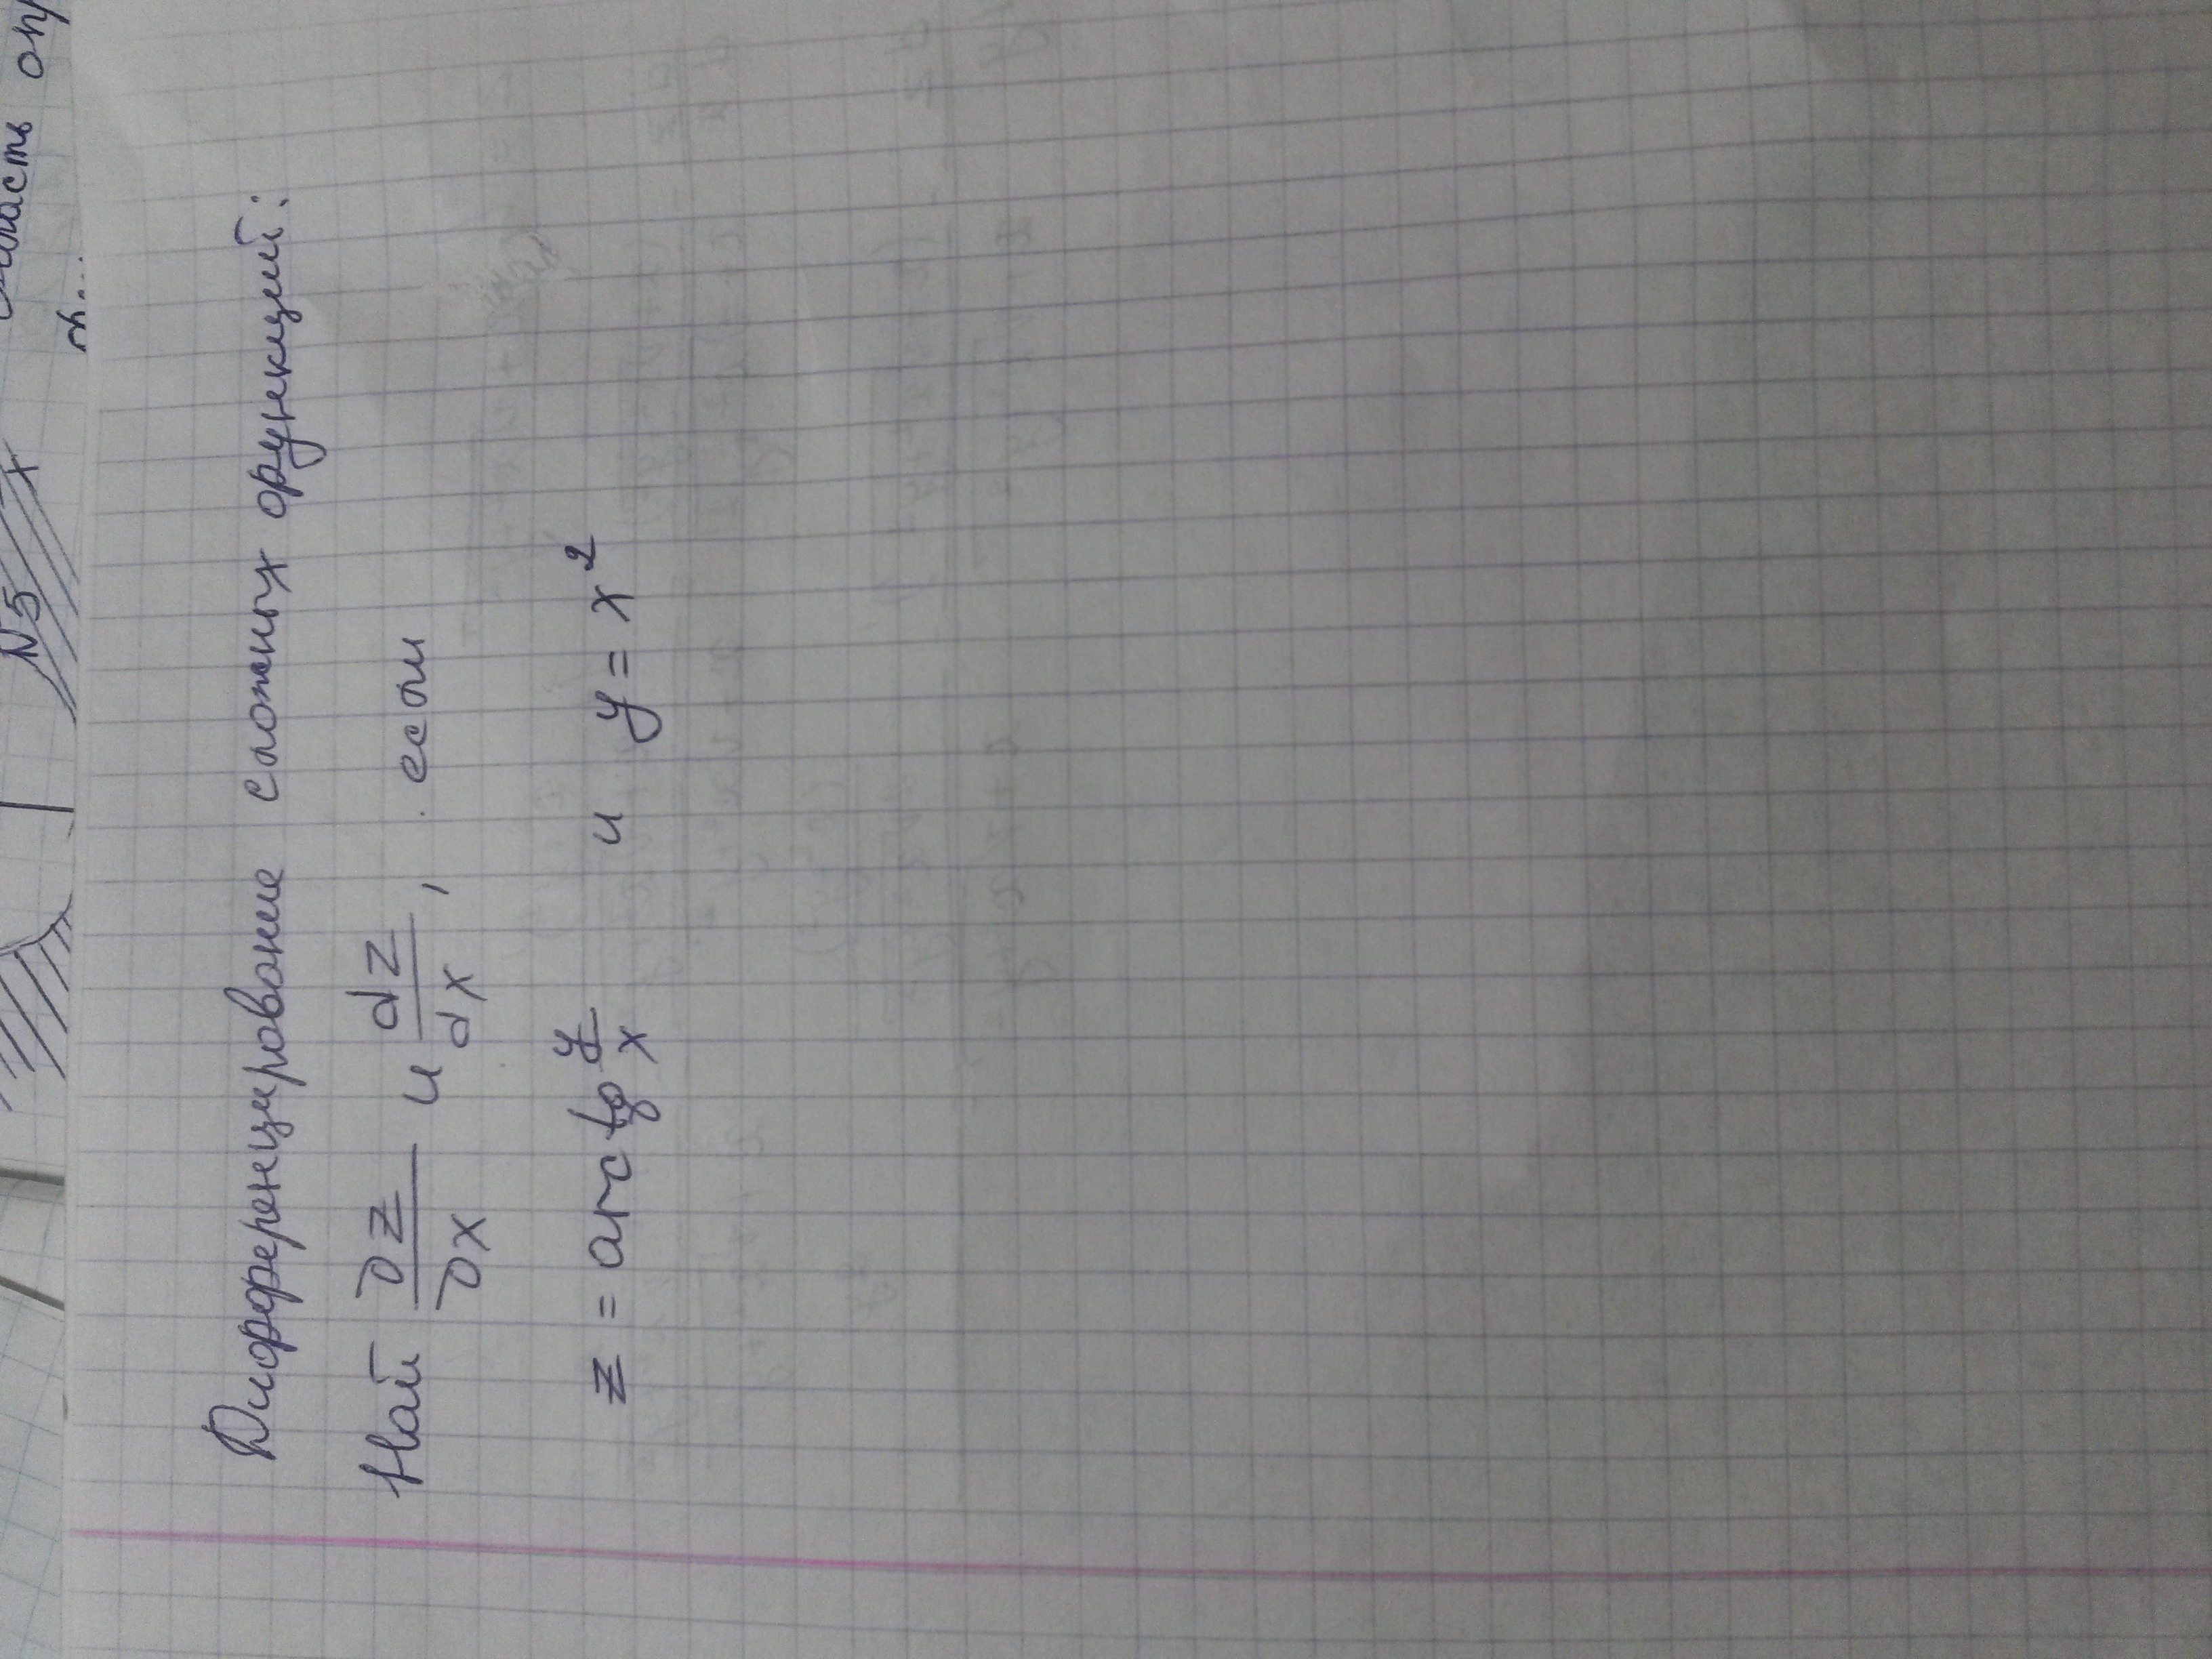 N5
Дифференцирование сложных функций:
Най ∂z/∂x и dz/dx, если
z = arctg y/x и y = x²